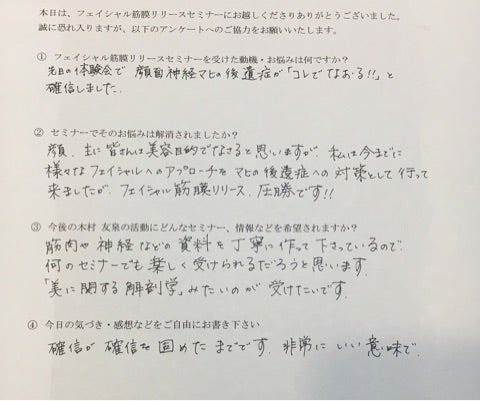 本日は、フェイシャル筋膜リリースセミナーにお越しくださりありがとうございました。
誠に恐れ入りますが、以下のアンケートへのご協力をお願いいたします。
① フェイシャル筋膜リリースセミナーを受けた動機・お悩みは何ですか?
先日の体験会で 顔面神経マヒの後遺症が「コレでなおる!!」と
確信しました.
② セミナーでそのお悩みは解消されましたか?
顔、主に皆さんは美容目的でなさると思いますが、私は今までに
様々なフェイシャルへのアプローチをマヒの後遺症への対策として行って
来ましたが、フェイシャル筋膜リリース、圧勝です!!
③ 今後の木村 友泉の活動にどんなセミナー、情報などを希望されますか?
筋肉や神経などの資料を丁寧に作って下さっているので、
何のセミナーでも楽しく受けられるだろうと思います.
「美に関する解剖学」みたいのが受けたいです.
④ 今日の気づき・感想などをご自由にお書き下さい
確信が確信を固めたまでです. 非常にいい意味で.